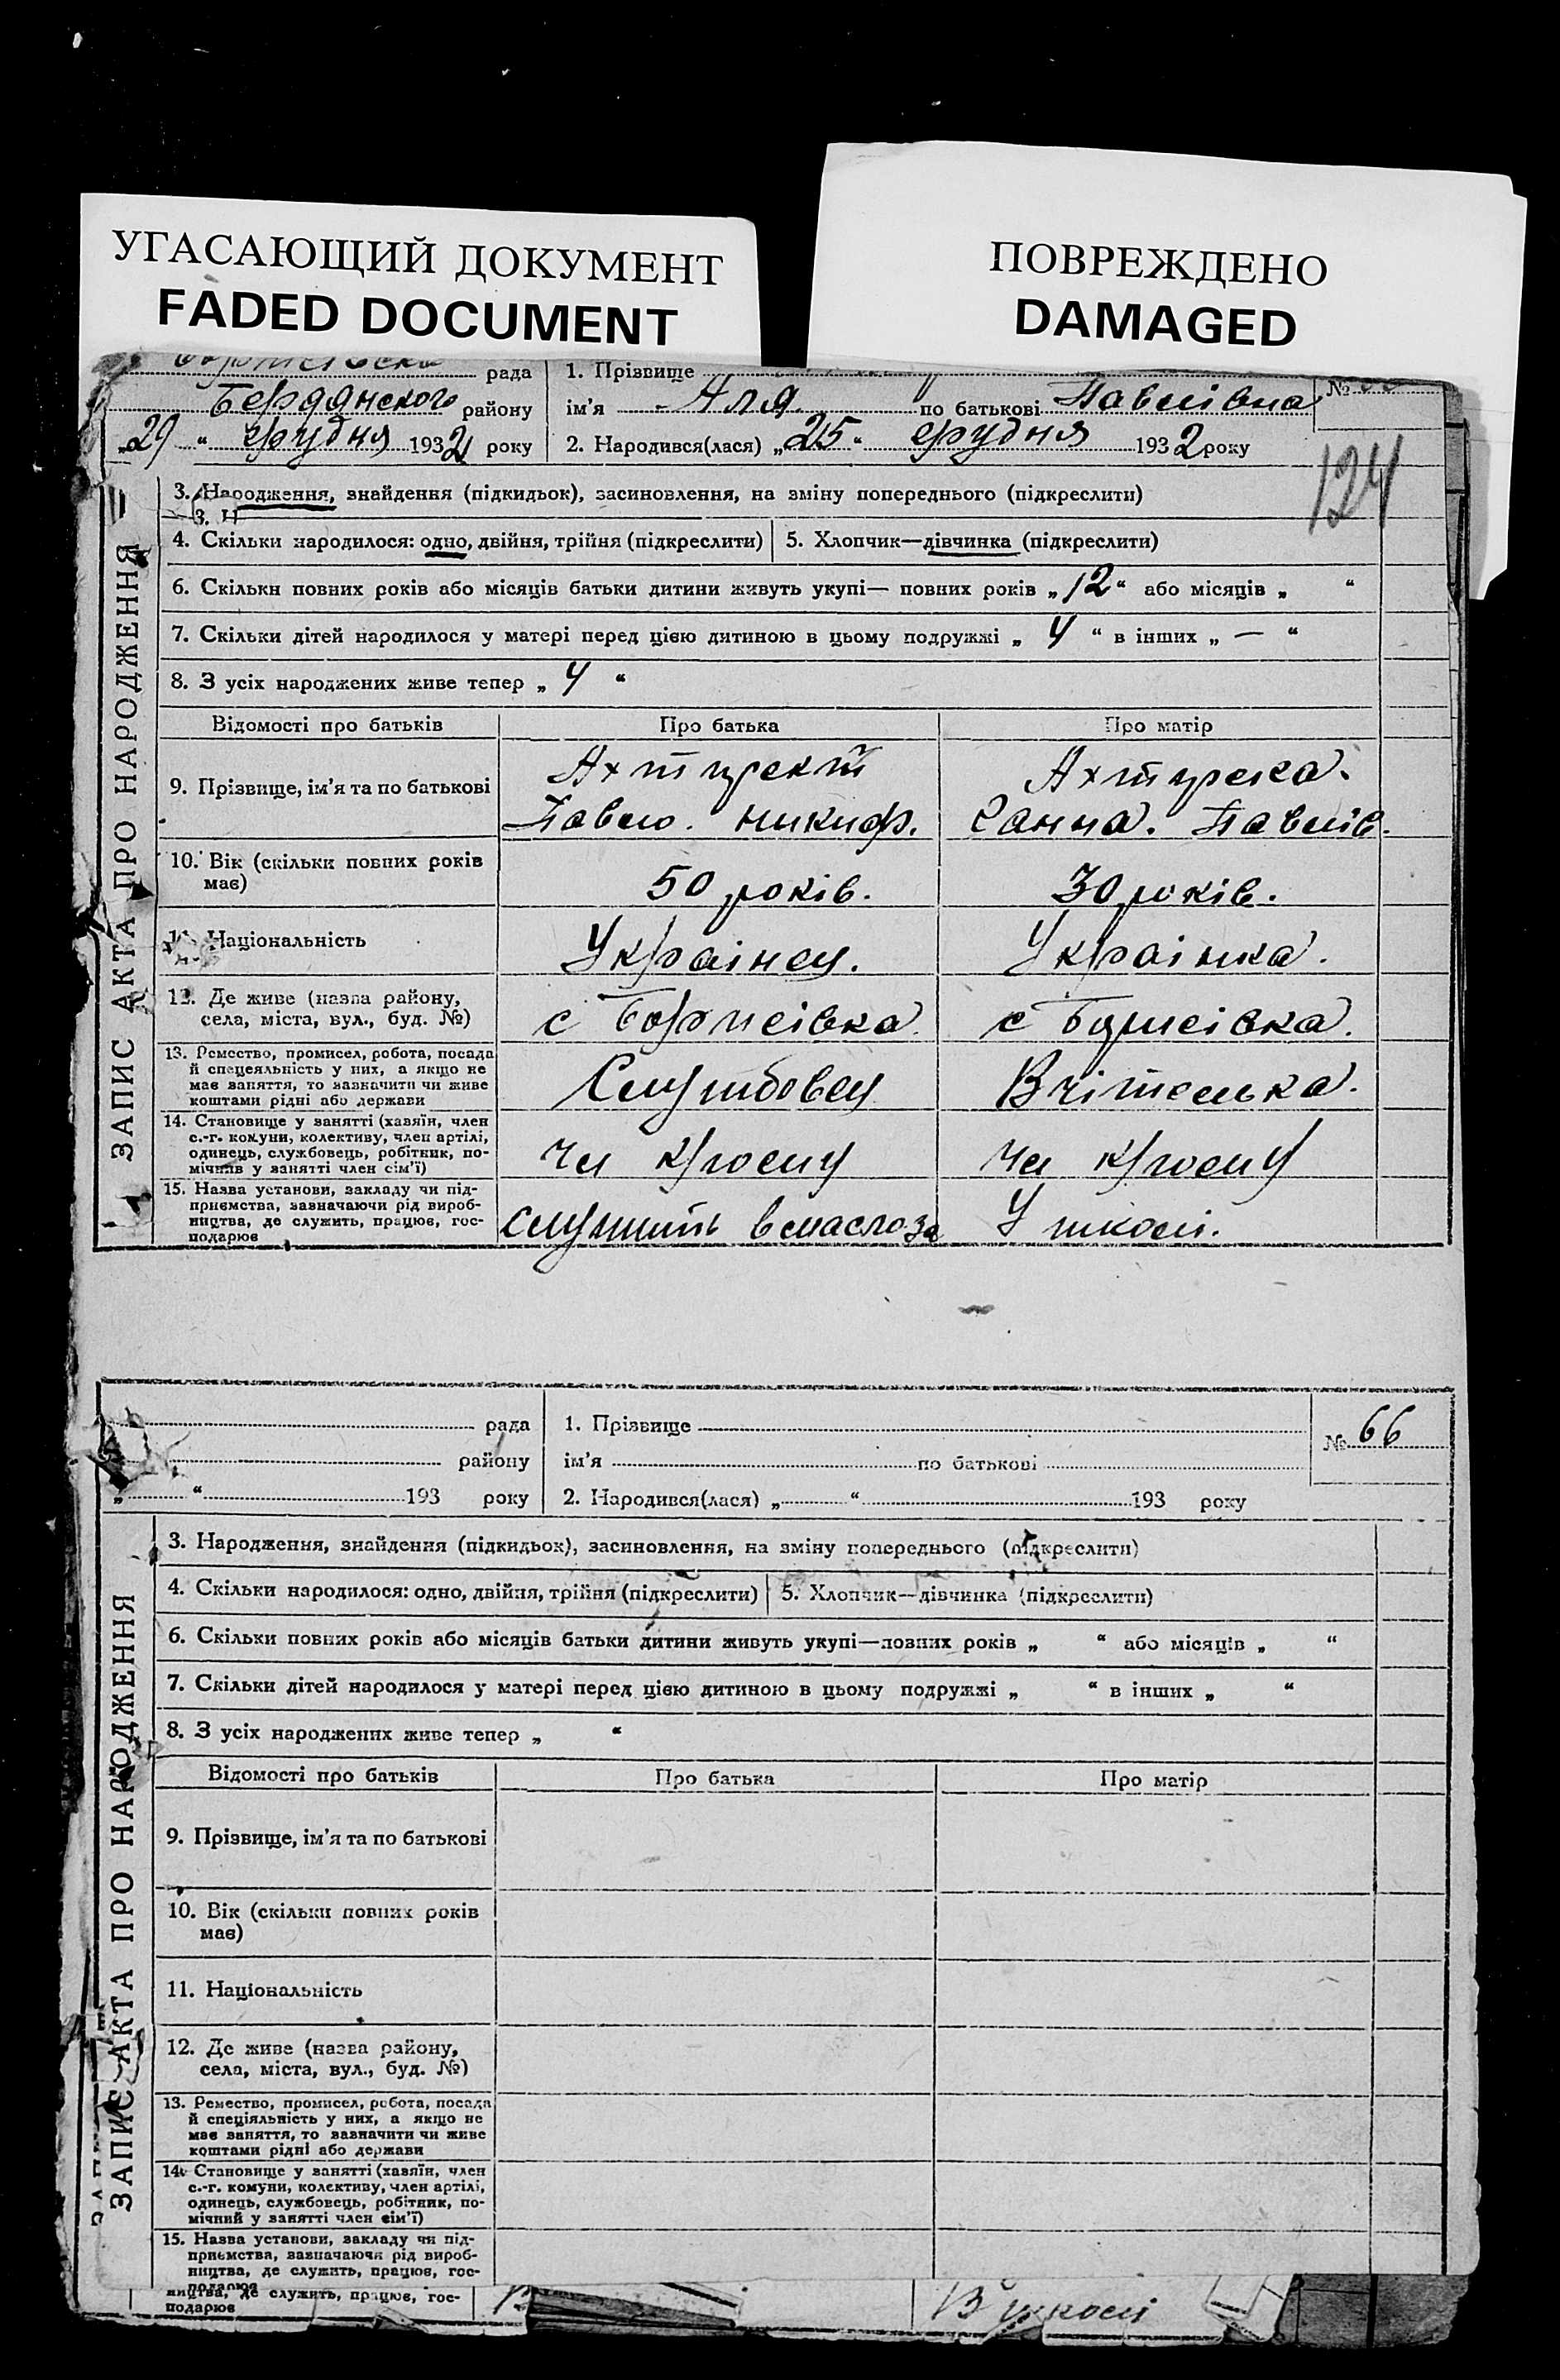 УГАСАЮЩИЙ ДОКУМЕНТ
FADED DOCUMENT
ПОВРЕЖДЕНО
DAMAGED
рада
1. Прізвище
№
Бердянского району
ім'я Аля по батькові Павлівна
„29“ грудня 1932 року
2. Народився(лася) „25“ грудня 1932 року
124
ЗАПИС АКТА ПРО НАРОДЖЕННЯ
3. Народження, знайдення (підкидьок), засиновлення, на зміну попереднього (підкреслити)
3. Н
4. Скільки народилося: одно, двійня, трійня (підкреслити)
5. Хлопчик—дівчинка (підкреслити)
6. Скільки повних років або місяців батьки дитини живуть укупі— повних років „12“ або місяців „ “
7. Скільки дітей народилося у матері перед цією дитиною в цьому подружжі „ 4 “ в інших „ — “
8. З усіх народжених живе тепер „ 4 “
Відомості про батьків
Про батька
Про матір
9. Прізвище, ім'я та по батькові
Павло. никиф.
Ганна. Павлів.
10. Вік (скільки повних років
має)
50 років.
30 років.
Національність
Українец.
Українка.
12. Де живе (назва району,
села, міста, вул., буд. №)
с Борисівка
с Борисівка.
13. Ремество, промисел, робота, посада
й спецеяльність у них, а якщо не
має заняття, то зазначити чи живе
коштами рідні або держави
Службовец
Вчітелька.
14. Становище у занятті (хазяїн, член
с.-г. комуни, колективу, член артілі,
одинець, службовець, робітник, по-
мічник у занятті член сім'ї)
Чл
Чл
15. Назва установи, закладу чи під-
приємства, зазначаючи рід вироб-
ництва, де служить, працює, гос-
подарює
служить в маслоза
У школі.
рада
1. Прізвище
№ 66
району
ім'я по батькові
„ “ 193 року
2. Народився(лася) „ “ 193 року
ЗАПИС АКТА ПРО НАРОДЖЕННЯ
3. Народження, знайдення (підкидьок), засиновлення, на зміну попереднього (підкреслити)
4. Скільки народилося: одно, двійня, трійня (підкреслити)
5. Хлопчик—дівчинка (підкреслити)
6. Скільки повних років або місяців батьки дитини живуть укупі—повних років „ “ або місяців „ “
7. Скільки дітей народилося у матері перед цією дитиною в цьому подружжі „ “ в інших „ “
8. З усіх народжених живе тепер „ “
Відомості про батьків
Про батька
Про матір
9. Прізвище, ім'я та по батькові
10. Вік (скільки повних років
має)
11. Національність
12. Де живе (назва району,
села, міста, вул., буд. №)
13. Ремество, промисел, робота, посада
й спеціяльність у них, а якщо не
має заняття, то зазначити чи живе
коштами рідні або держави
14. Становище у занятті (хазяїн, член
с.-г. комуни, колективу, член артілі,
одинець, службовець, робітник, по-
мічний у занятті член сім'ї)
15. Назва установи, закладу чи під-
приємства, зазначаючи рід вироб-
ництва, де служить, працює, гос-
подарює
ництва, де служить, працює, гос-
подарює
В школі